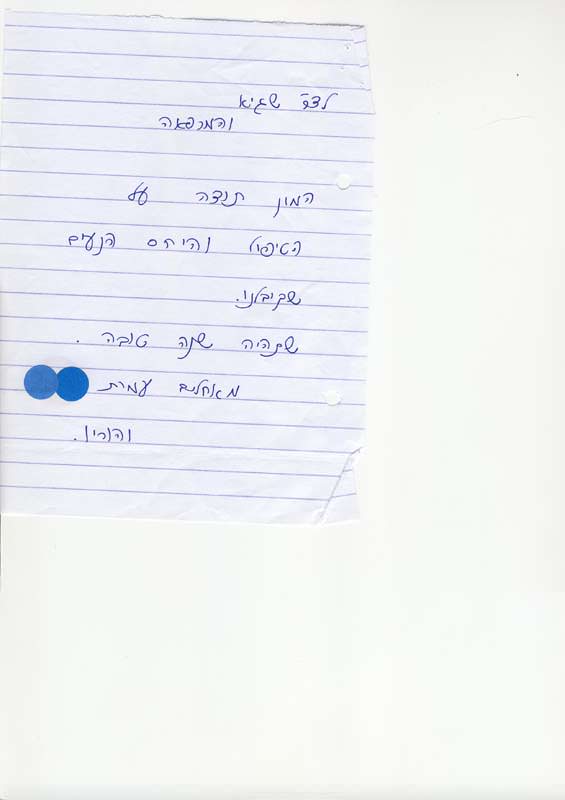 לדר׳ שגיא
והמרפאה
המון תודה על
הטיפול והיחס הנעים
שקיבלנו.
שתהיה שנה טובה.
מאחלים עמית
והורין.